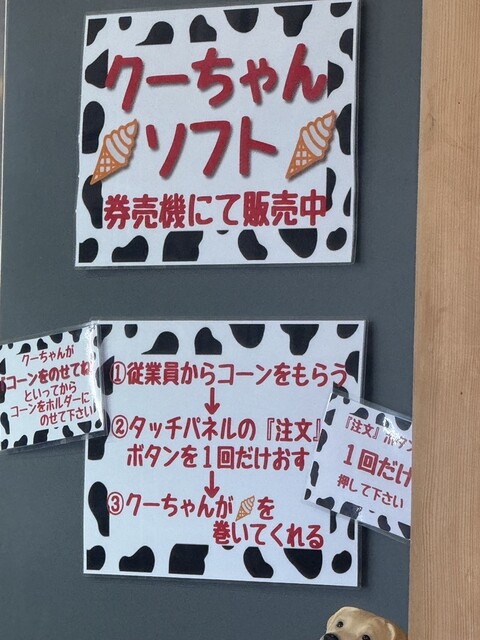 クーちゃん
ソフト
券売機にて販売中
①従業員からコーンをもらう
↓
②タッチパネルの『注文』
ボタンを1回だけおす
↓
③クーちゃんが を
巻いてくれる
クーちゃんが
コーンをのせてね
といってから
コーンをホルダーに
のせて下さい
『注文』ボタン
1回だけ
押して下さい